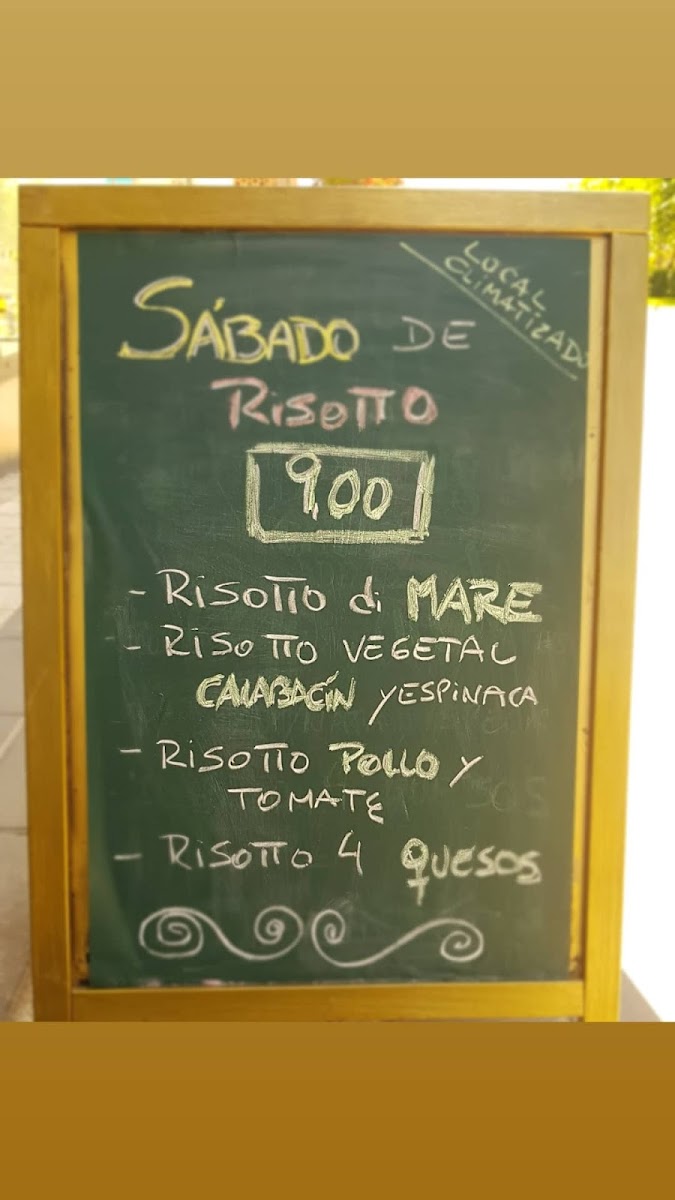 LOCAL
CLIMATIZADO
SÁBADO DE
RISOTTO
9,00
- RISOTTO di MARE
- RISOTTO VEGETAL
CALABACÍN Y ESPINACA
- RISOTTO POLLO Y
TOMATE
- RISOTTO 4 QUESOS